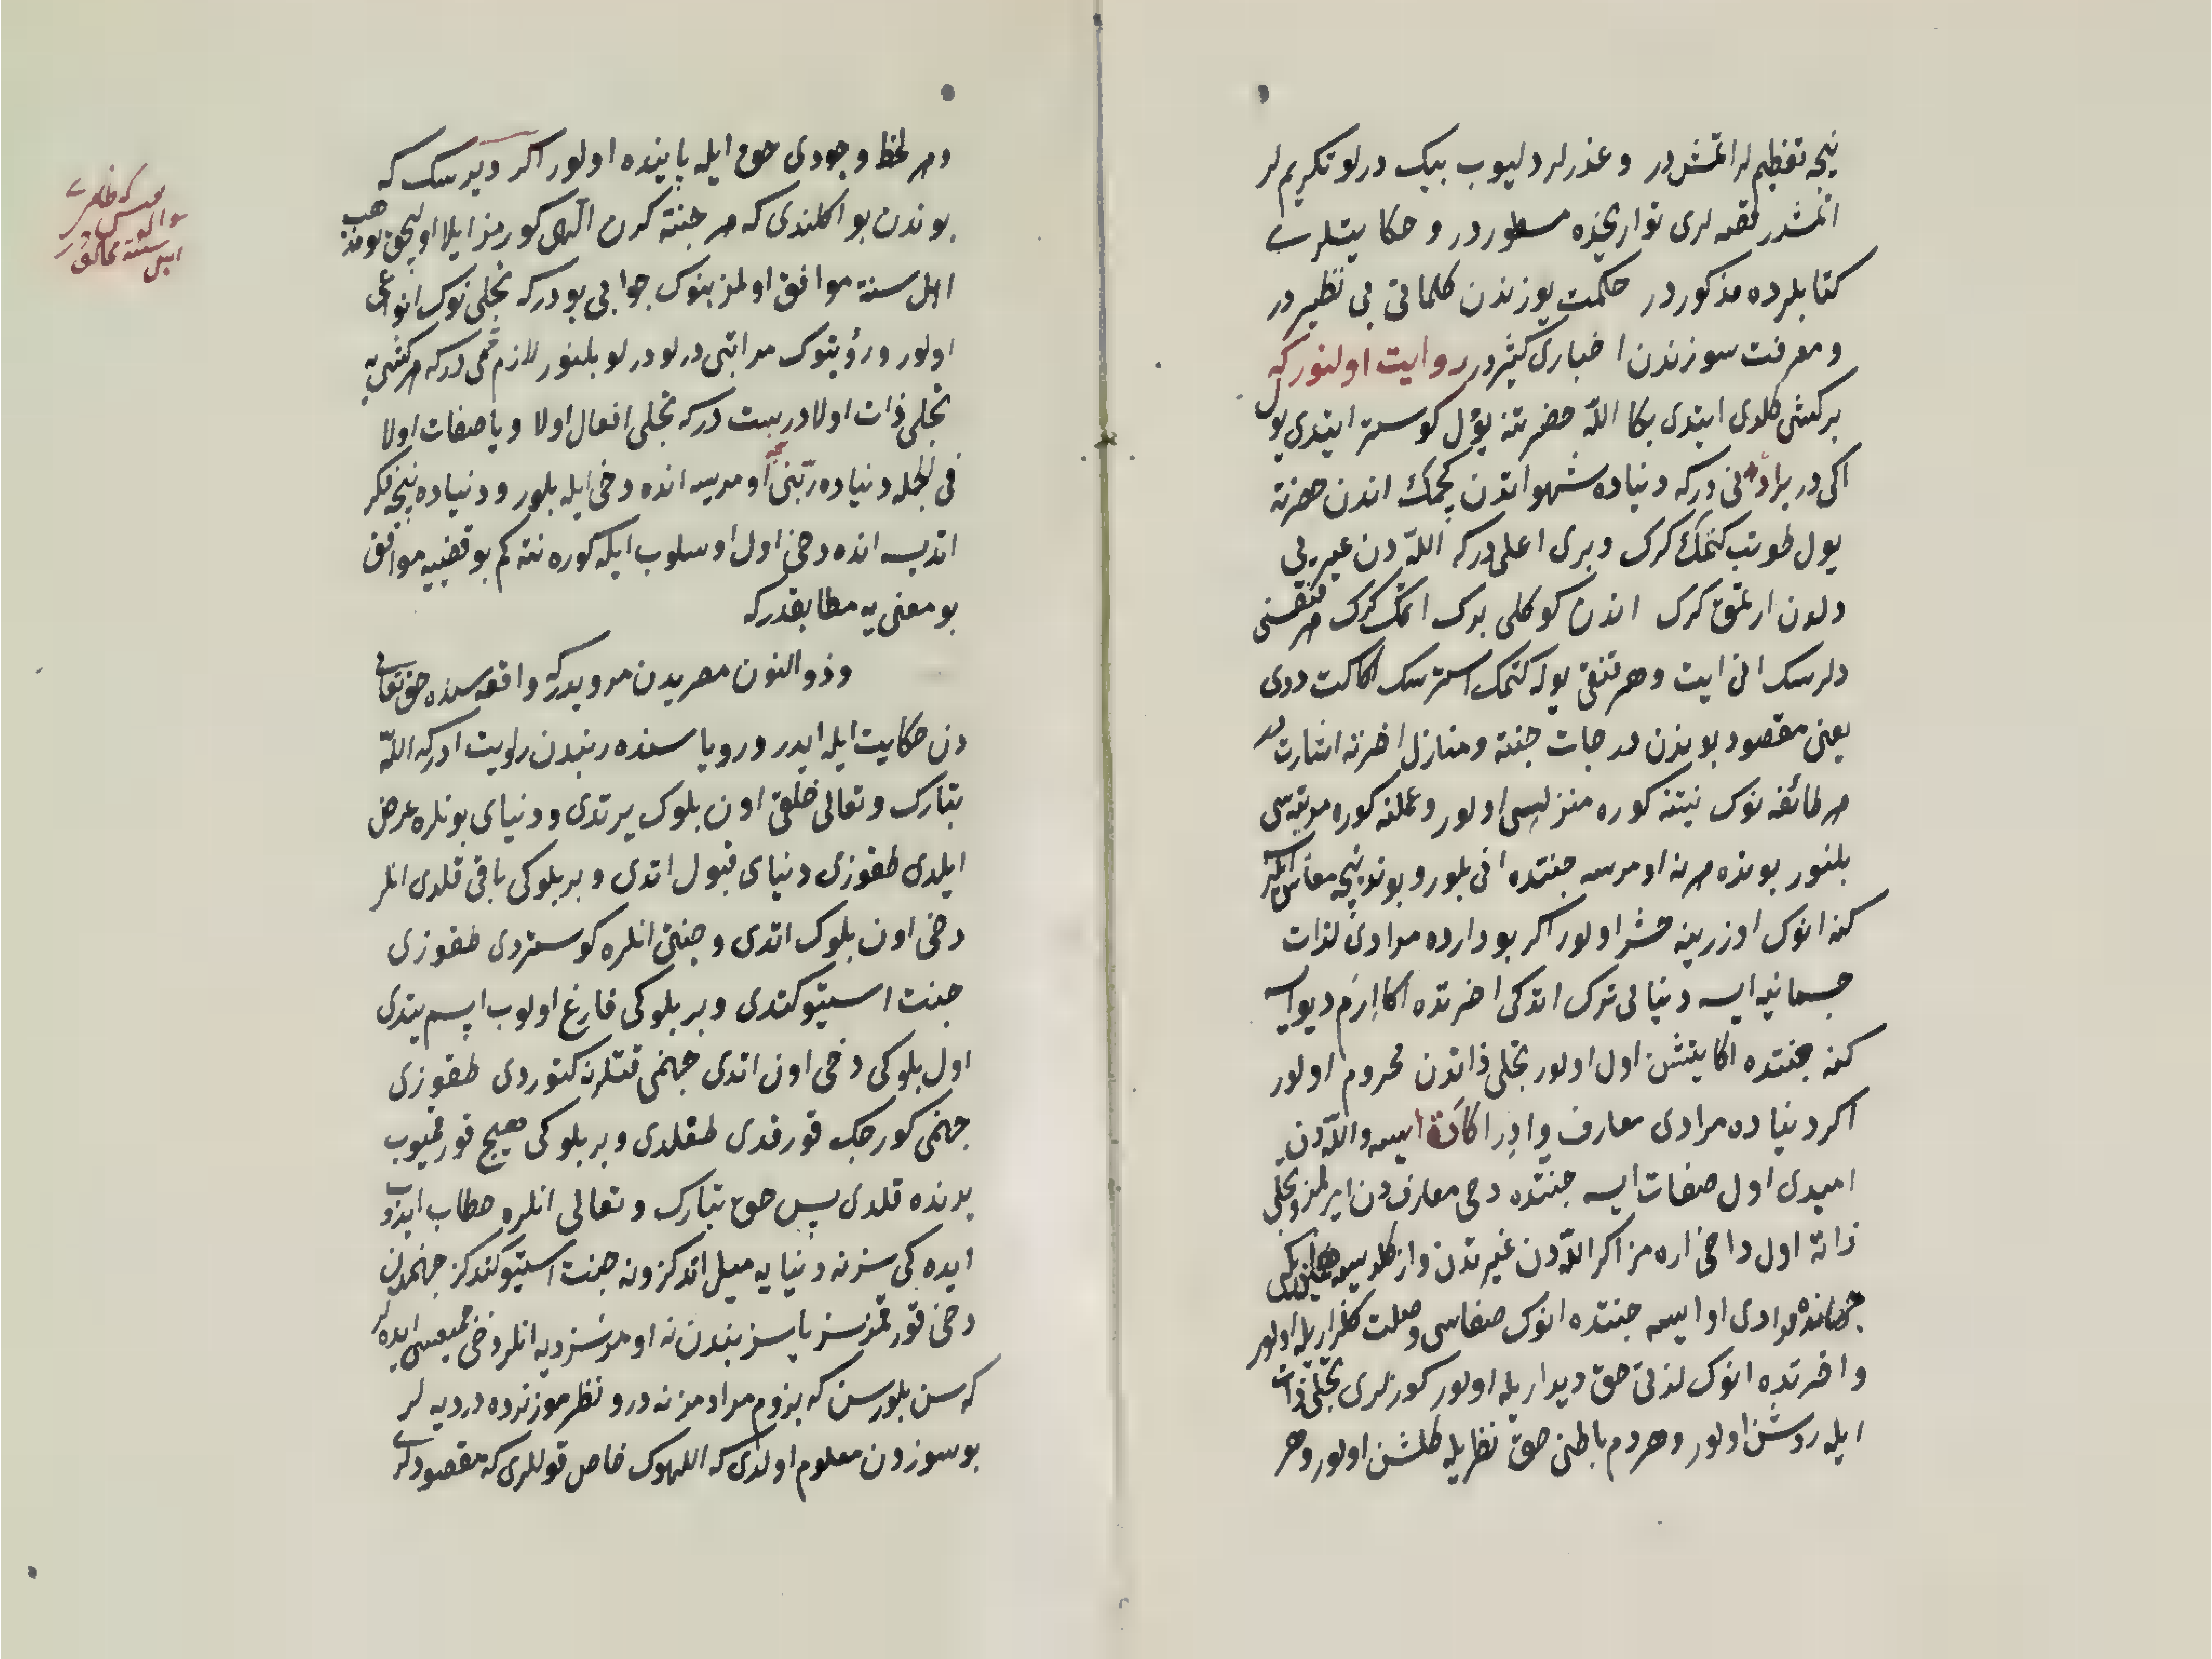 نیجه تعظیملر اتمشدر و عذرلر دلیوب بیک درلو تکریملر
اتمشدر قصه لری تواریخده مسطوردر و حکایتلری
کتابلرده مذکوردر حکمت یوزندن کلماتی بی نظیردر
و معرفت سوزندن اخباری کثیردر روایت اولنور که
بر کشی کلدی ایتدی بکا الله حضرتنه یول کوستر ایتدی یول
اکی در براد نی درکه دنیاده شهواتدن کچمک اندن حضرته
یول طوتب کتمک کرک و بری اعلی درکه اللهدن غیریی
دلدن ارتمق کرک اندن کوکلی برک اتمک کرک هر قنقسنی
دلرسک انی ایت و هر قنقی یوله کتمک استرسک اکا کت ددی
یعنی مقصود بو سوزدن درجات جنته و منازل اخرته اشارتدر
هر طائفه نوک نیتنه کوره منزلسی اولور و عملنه کوره مرتبه سی
بلنور بونده هر نه اومرسه جنتده انی بلور و بونده نیجه معاش
کنه انوک اوزرینه حشر اولور اکر بو دارده مرادی لذات
جسمانیه ایسه دنیایی ترک اتدکی اخرتده اکا ارم دیو ایسه
کنه جنتده اکا یتشن اول اولور تجلی ذاتدن محروم اولور
اکر دنیاده مرادی معارف و ادراکات ایسه و اللهدن
امیدی اول صفات ایسه جنتده دخی معارفدن ایرلمز و تجلی
ذاته اول داخی اره مز اکر اللهدن غیرندن وازکلدیسه
مرادی او ایسه جنتده انوک صفاسی وصلت کلزاریله اولور
و اخرتده انوک لذتی حق دیداریله اولور کوزلری تجلی ذات
ایله روشن اولور و هر دم باطنی حق نظریله کلشن اولور و هر
دم هر لحظ وجودی حق ایله پاینده اولور اکر دیرسک که
بوندن بو اکلندی که هر جنته کرن اللهی کورمز ایلا اولیجق بو مذهب
اهل سنته موافق اولمز بنوک جوابی بودرکه تجلی نوک انواعی
اولور و رؤیتوک مراتبی درلو درلو بلنور لازم می درکه هر کشی یه
تجلی ذات اولا درست درکه تجلی افعال اولا و یا صفات اولا
فی الجمله دنیاده ربنی نیجه اومرسه انده دخی ایله بلور و دنیاده نیجه فکر
اتدیسه انده دخی اول اسلوب ایله کوره نته کم بو قضیه موافق
بو معنی یه مطابقدرکه
و ذو النون مصریدن مرویدرکه واقعه سنده حق تعالی
دن حکایت ایله ایدر و رویاسنده ربندن روایت ادرکه الله
تبارک و تعالی خلقی اون بلوک یرتدی و دنیای بونلره عرض
ایلدی طقوزی دنیای قبول اتدی و بر بلوکی باقی قلدی انلر
دخی اون بلوک اتدی و جنتی انلره کوستردی طقوزی
جنت استیو کتدی و بر بلوکی فارغ اولوب اپسم یتدی
اول بلوکی دخی اون اتدی جهنمی قتلرنه کتوردی طقوزی
جهنمی کورجک قورقدی طقلدی و بر بلوکی هیچ قورقمیوب
یرنده قلدی پس حق تبارک و تعالی انلره خطاب ایدوب
ایده کی سز نه دنیایه میل اتدکز و نه جنت استیو کتدکز جهنمدن
دخی قورقمزسز یا سز بندن نه اومرسز دیه انلر دخی ایده لر
که سن بلورسن که بزوم مرادمز نه در و نظرموز نرده در دیه لر
بو سوزدن معلوم اولدی که اللهوک خاص قوللری که مقصودلری